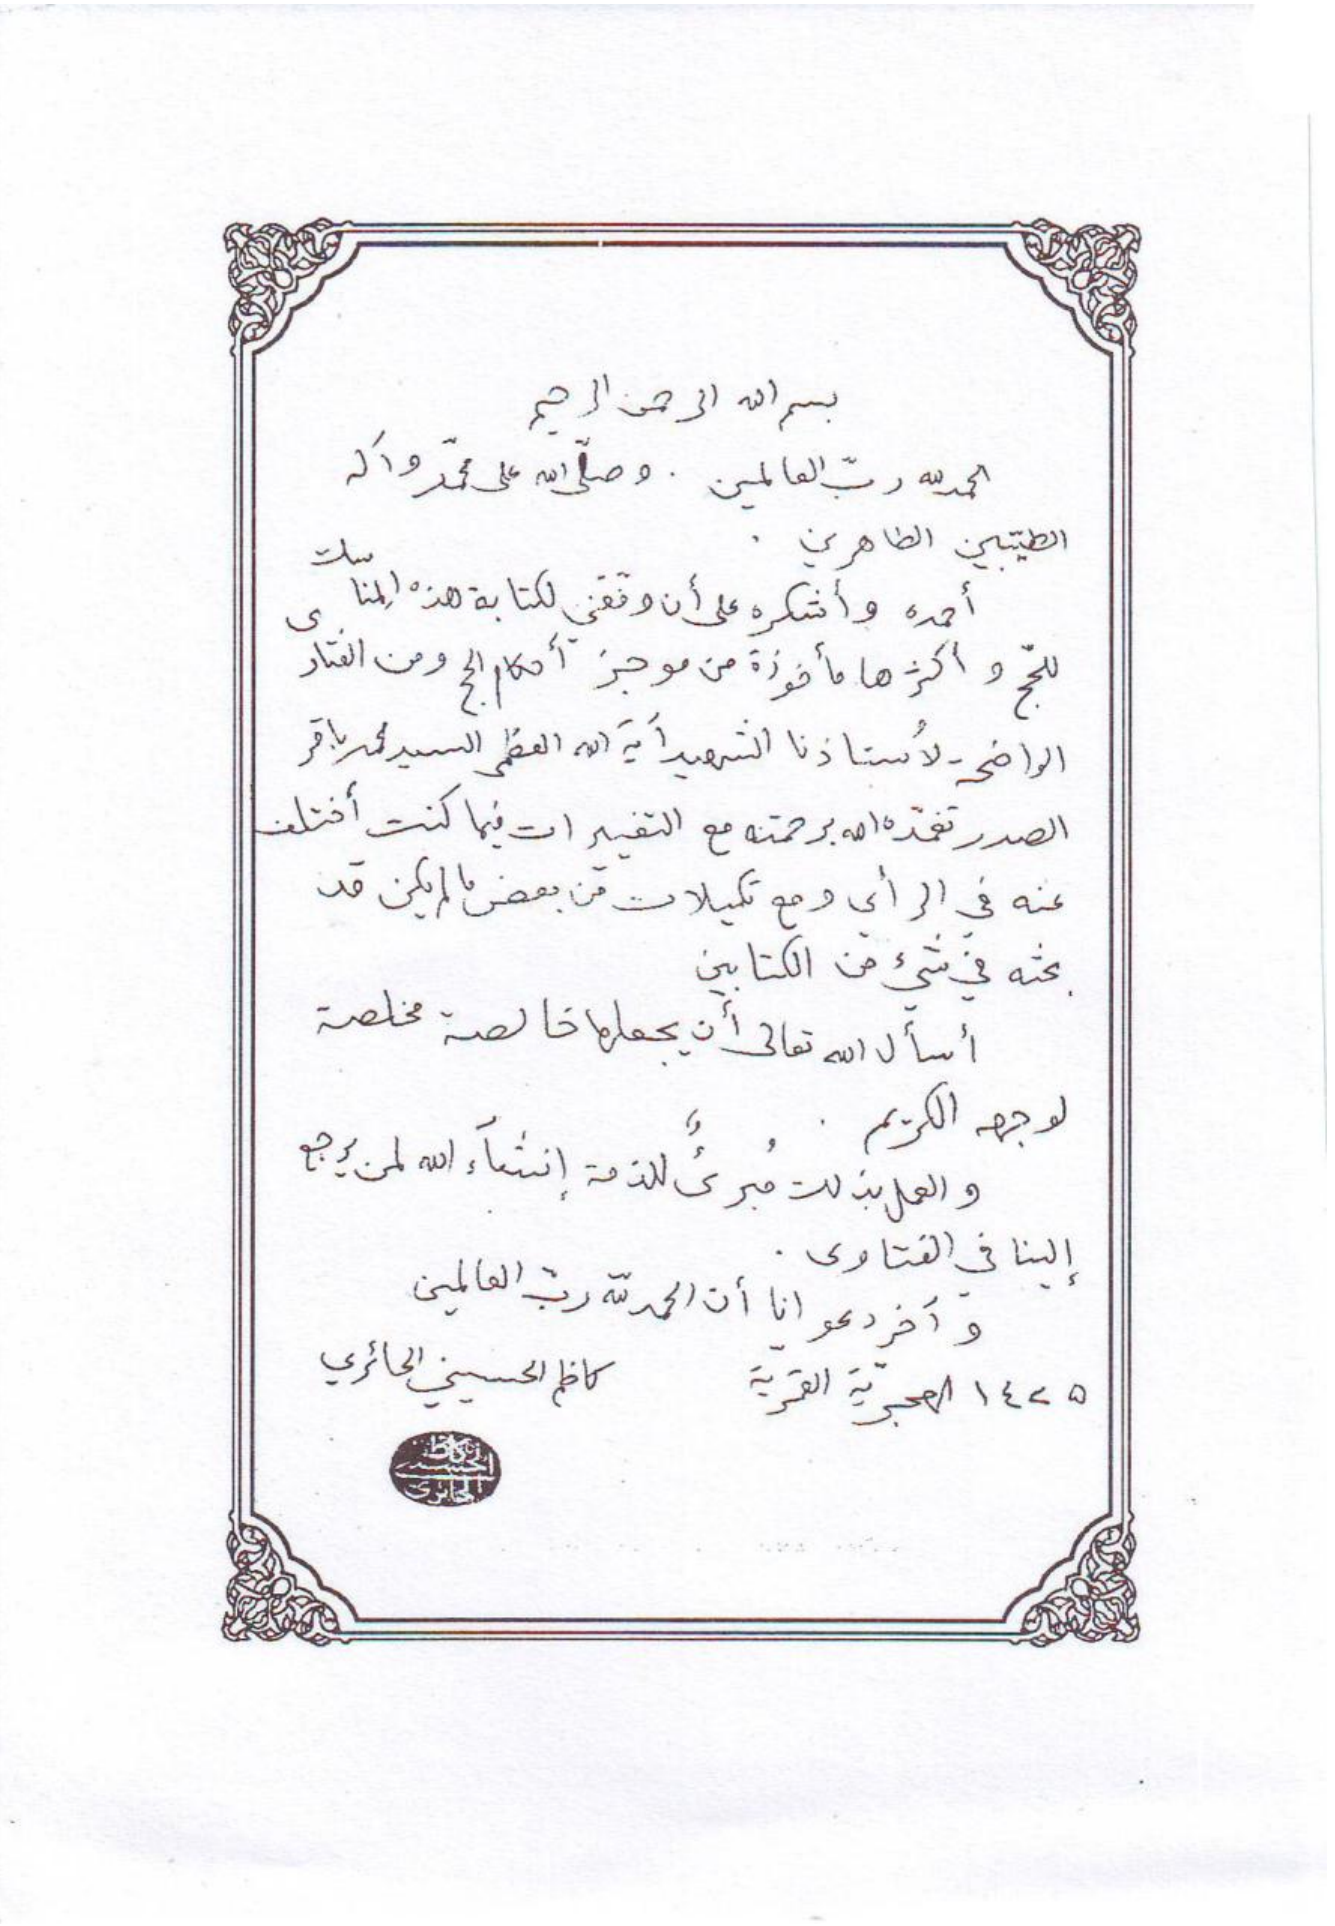 بسم الله الرحمن الرحيم
الحمد لله ربّ العالمين . وصلّى الله على محمّد وآله
الطيّبين الطاهرين .
أحمده وأشكره على أن وفّقني لكتابة هذه المناسك
للحجّ وأكثرها مأخوذة من موجز أحكام الحج ومن الفتاوى
الواضحة لأُستاذنا الشهيد آية الله العظمى السيد محمد باقر
الصدر تغمّده الله برحمته مع التغييرات فيما كنت أختلف
عنه في الرأي ومع تكميلات من بعض ما لم يكن قد
بحثه في شيء من الكتابين
أسأل الله تعالى أن يجعلها خالصة مخلصة
لوجهه الكريم .
والعمل بذلك مُبرئٌ للذمة إنشآء الله لمن يرجع
إلينا في الفتاوى .
وآخر دعوانا أن الحمد لله ربّ العالمين
١٤٢٥ الهجريّة القمريّة كاظم الحسيني الحائري
كاظم
الحسيني
الحائري